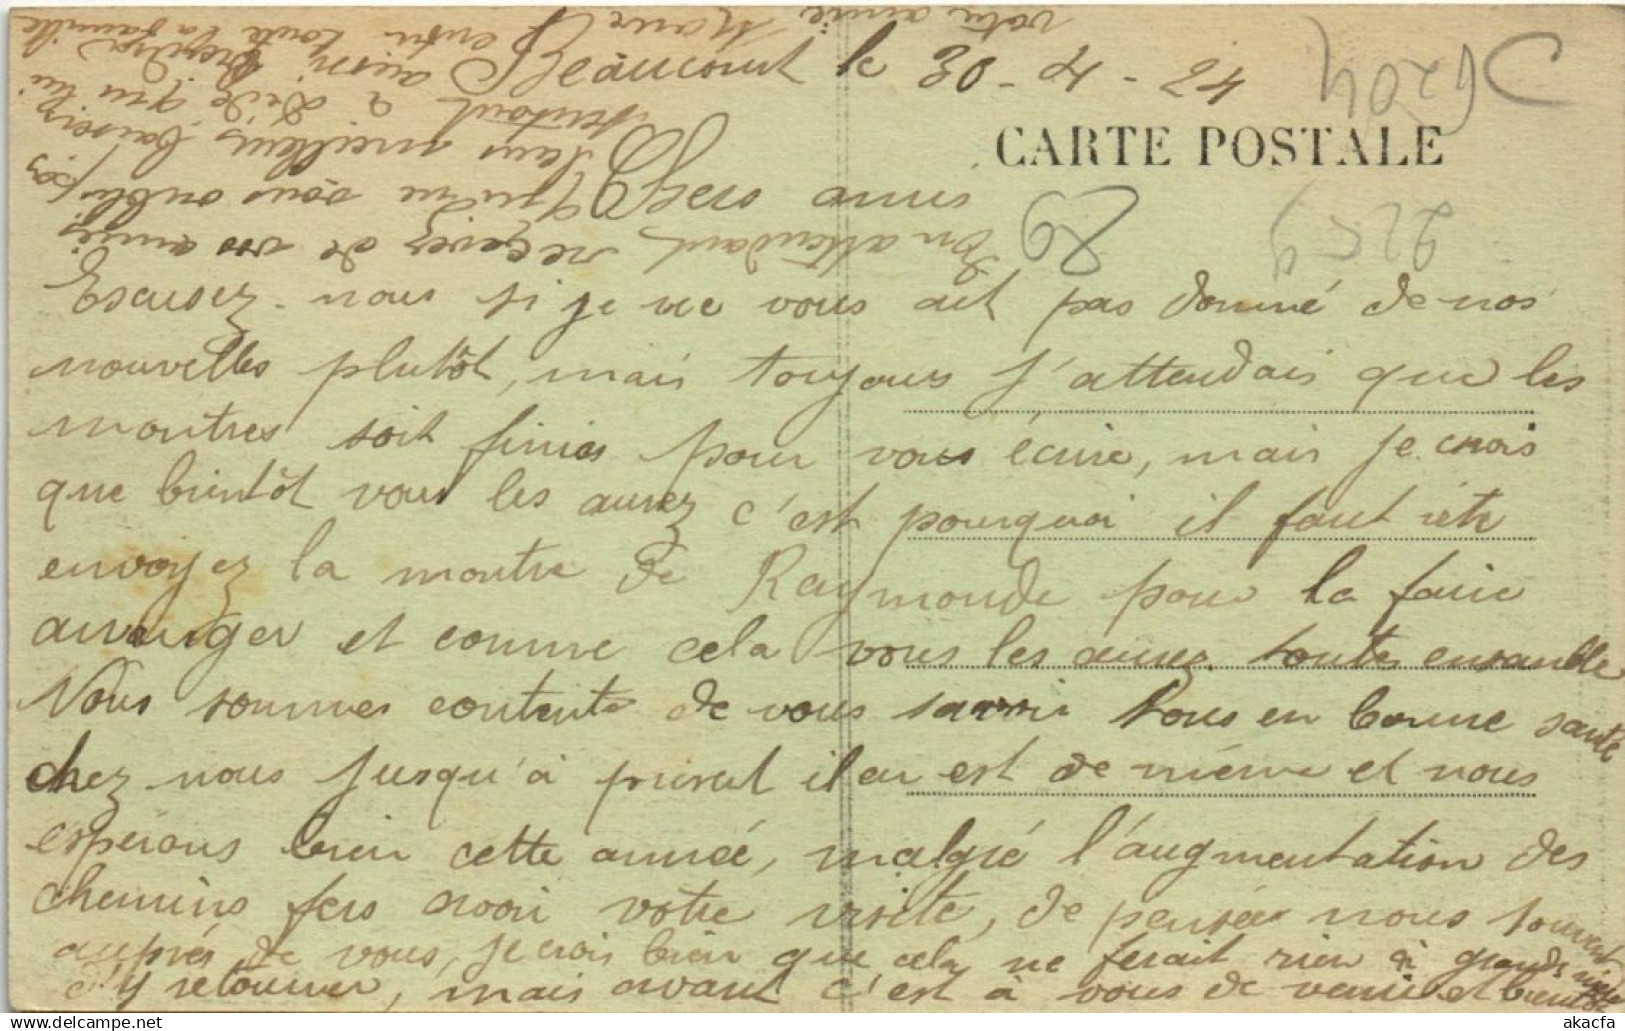 Beaucourt le 30-4-24
CARTE POSTALE
Chers amis
Excusez-nous si je ne vous ait pas donné de nos
nouvelles plutôt, mais toujours j'attendais que les
montres soit finies pour vous écrire, mais je crois
que bientôt vous les aurez c'est pourquoi il faut vite
envoyez la montre de Raymonde pour la faire
arranger et comme cela vous les aurez toutes ensemble
Nous sommes contents de vous savoir tous en bonne santé
chez nous jusqu'à présent il en est de même et nous
espérons bien cette année, malgré l'augmentation des
chemins fers avoir votre visite, de pensée nous sommes
auprès de vous, je crois bien que cela ne ferait rien à grand mère
d'y retourner, mais avant c'est à vous de venir et bientôt
En attendant recevez de vos amis
qui ne vous oublie pas
leurs meilleurs baisers
surtout à Dédé qui lui
aussi
enfin toute la famille
votre amie
89
akacfa